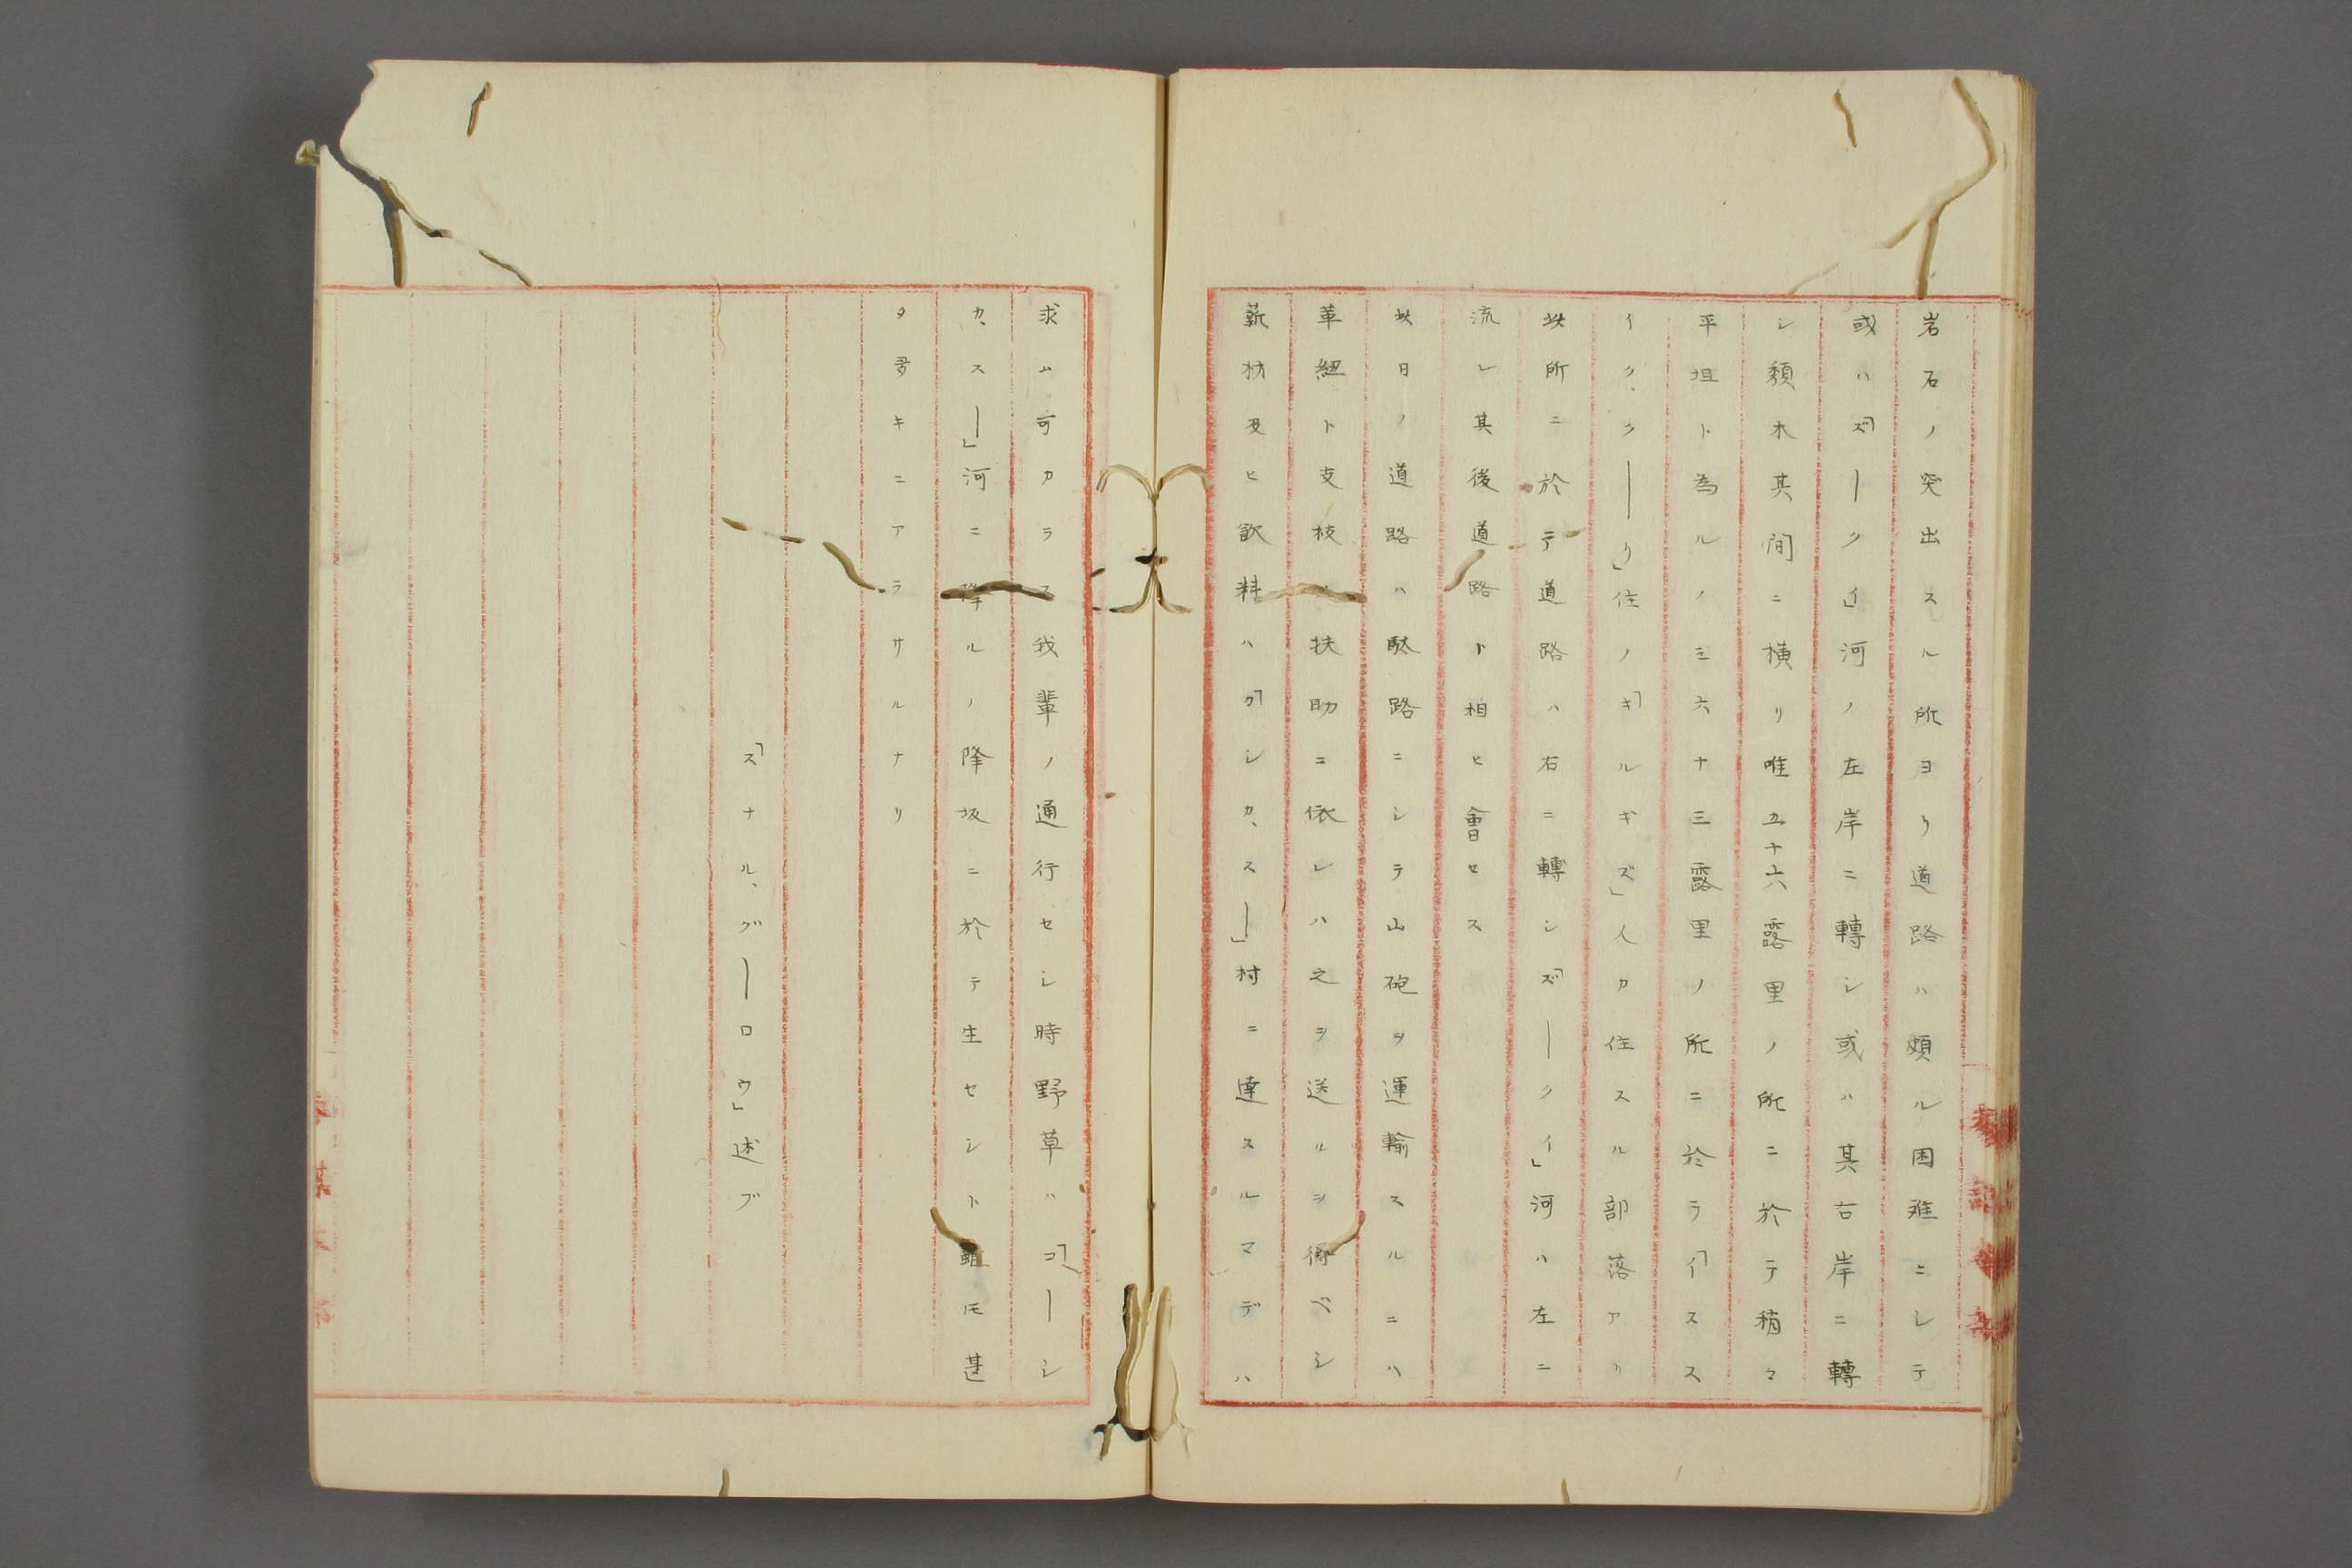 岩石ノ突出スル所ヨリ道路ハ頗ル困难ニシテ
或ハ「ズークイ」河ノ左岸ニ轉シ或ハ其右岸ニ轉
シ頽木其間ニ横リ唯五十六露里ノ所ニ於テ稍々
平坦ト為ルノミ六十三露里ノ所ニ於ラ「イスス
イク、クーリ」住ノ「キルギズ」人カ住スル部落アリ
此所ニ於テ道路ハ右ニ轉シ「ズークイ」河ハ左ニ
流レ其後道路ト相ヒ會セス
此日ノ道路ハ駄路ニシテ山砲ヲ運輸スルニハ
革紐ト支校ノ扶助ニ依レハ之ヲ送ルヲ得ベシ
薪材及ヒ飲料ハ「クシカ、スー」村ニ達スルマデハ
求ム可カラス我輩ノ通行セシ時野草ハ「コーシ
カ、スー」河ニ降ルノ降坂ニ於テ生セシト雖𪜈甚
タ多キニアラサルナリ
「スナル、グーロウ」述ブ